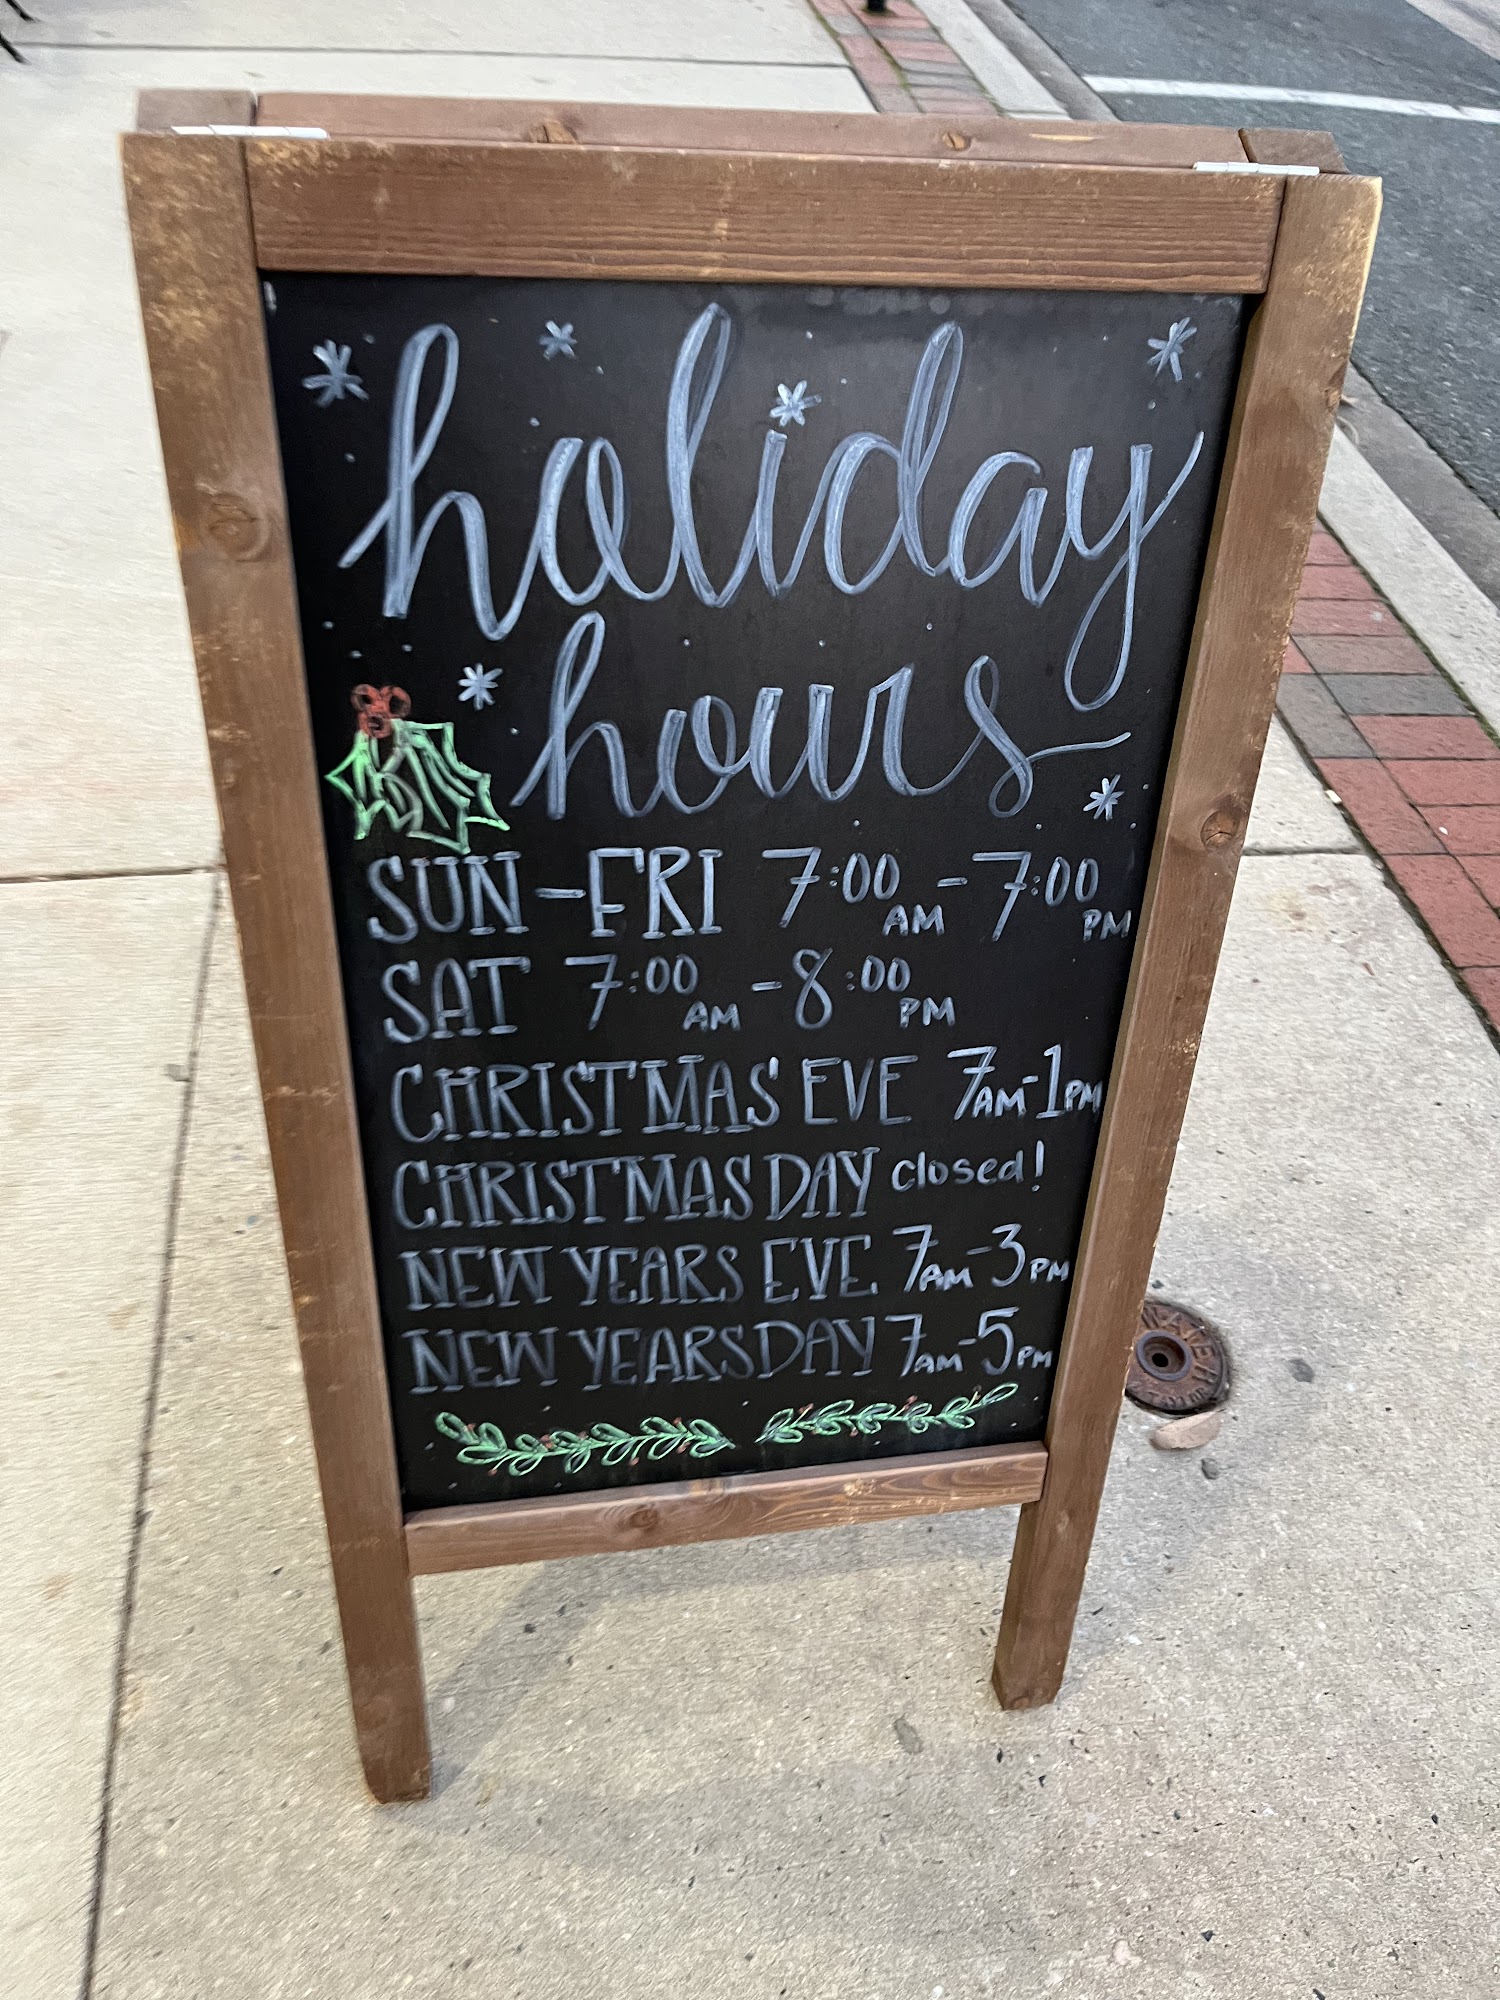 holiday
hours
SUN-FRI 7:00AM - 7:00PM
SAT 7:00AM - 8:00PM
CHRISTMAS EVE 7AM-1PM
CHRISTMAS DAY closed!
NEW YEARS EVE 7AM-3PM
NEW YEARS DAY 7AM-5PM